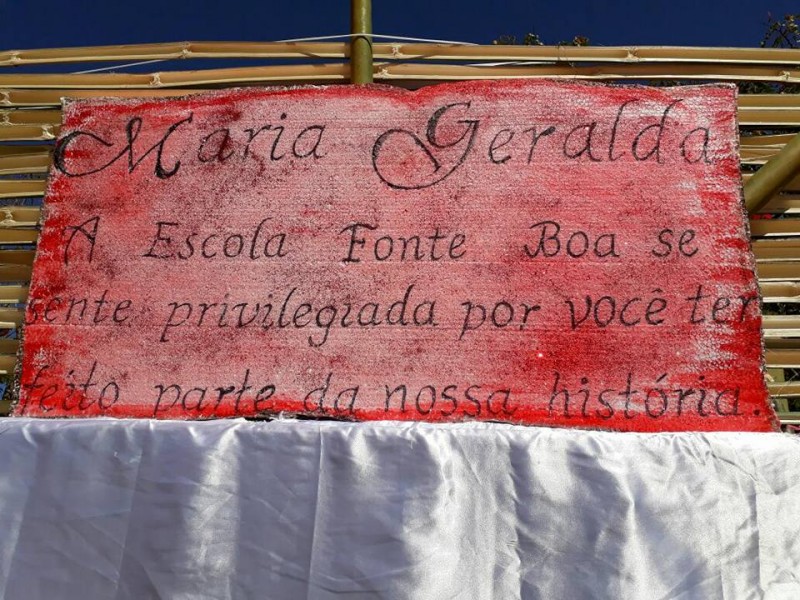 Maria Geralda
A Escola Fonte Boa se
sente privilegiada por você ter
feito parte da nossa história.